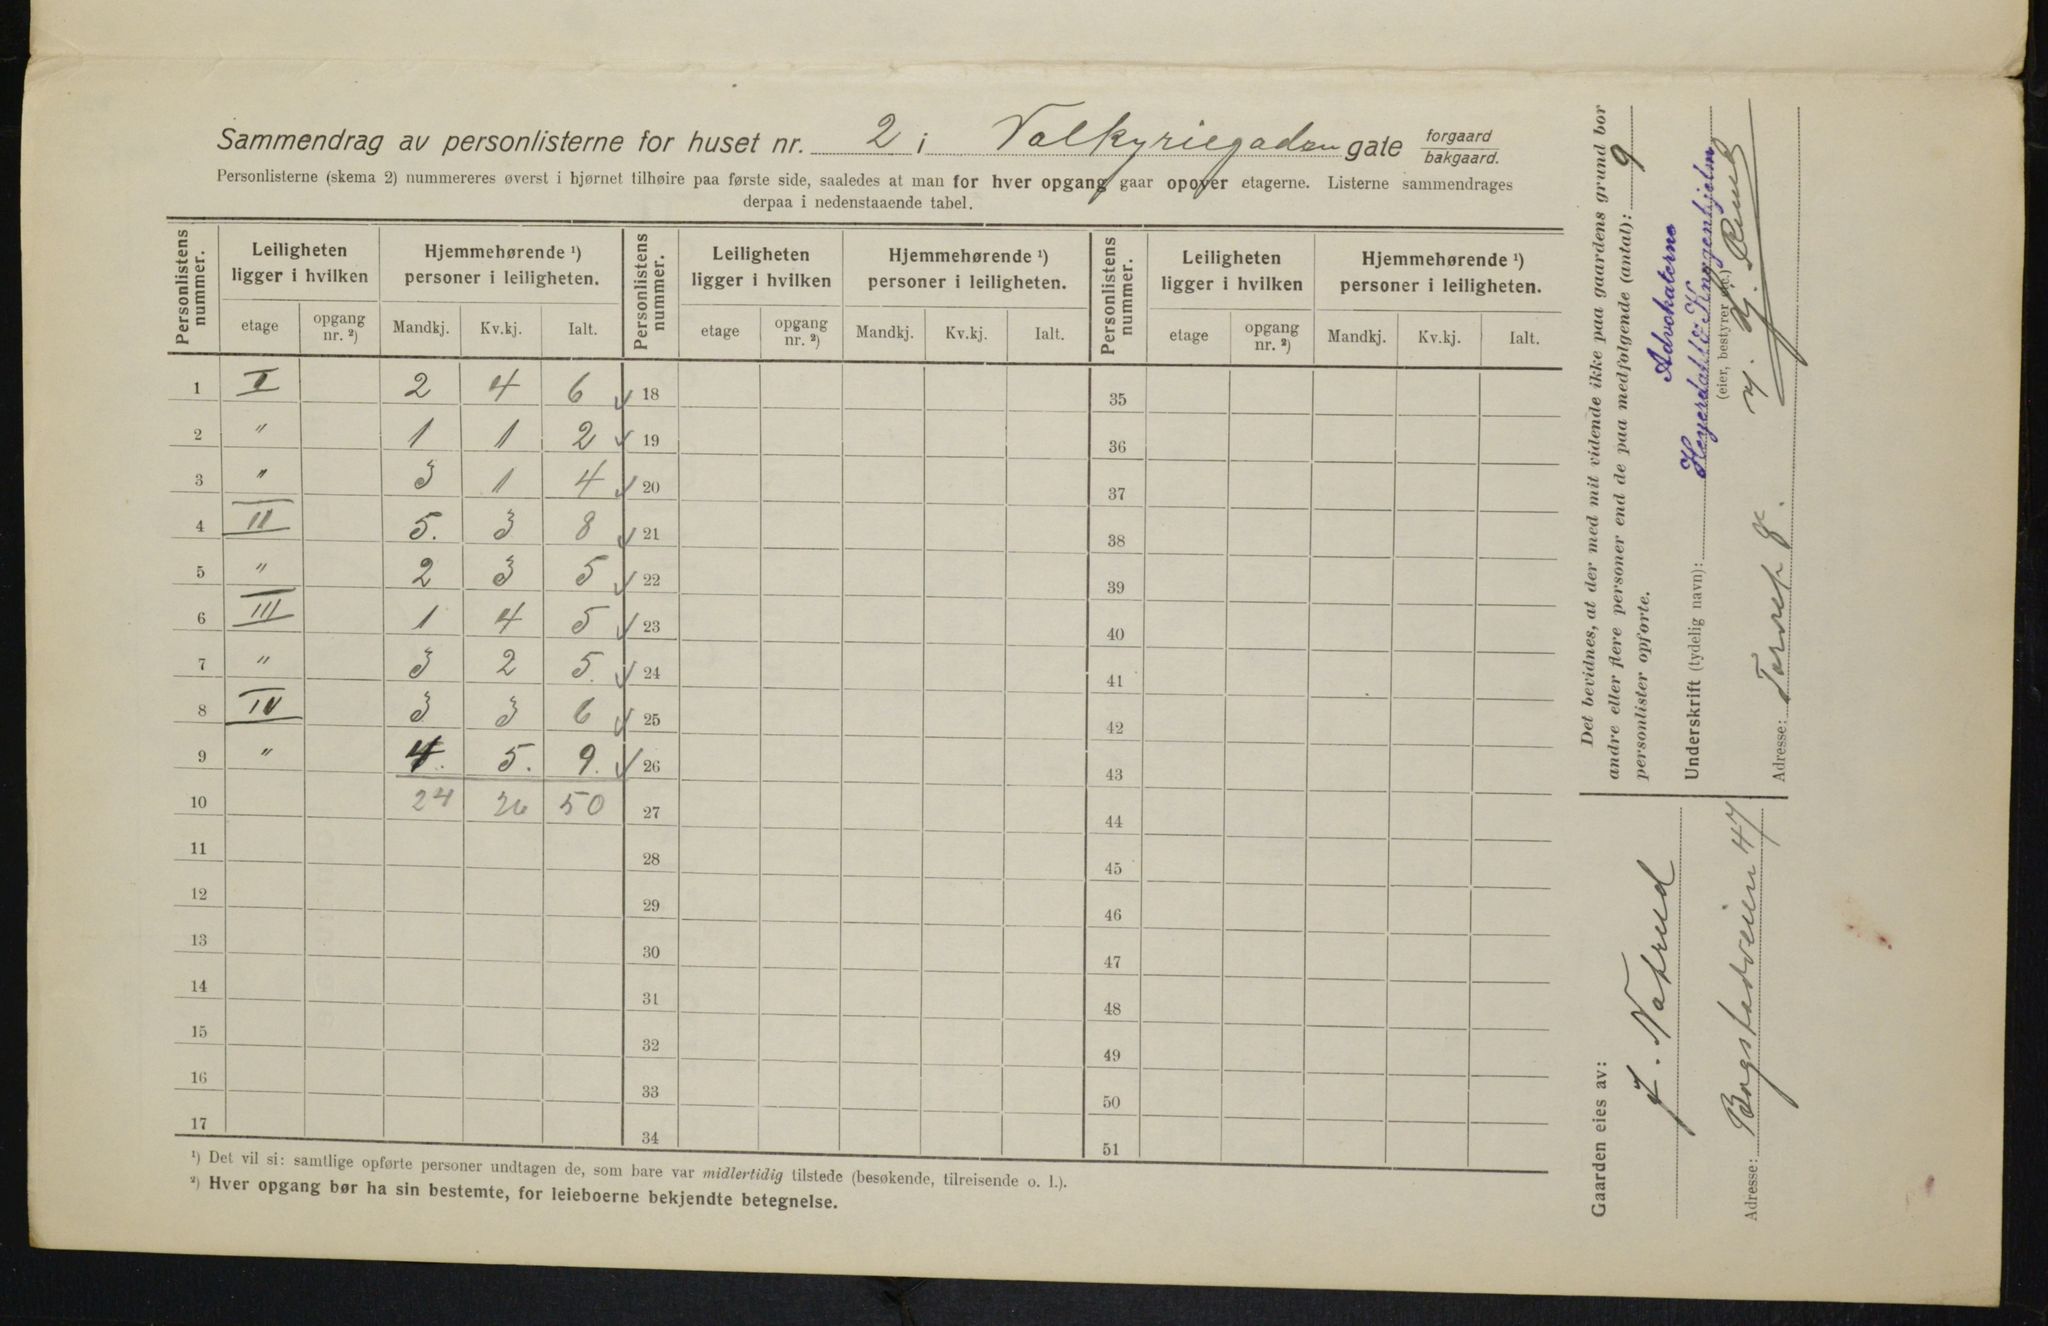 Sammendrag av personlisterne for huset nr. 2 i Valkyriegaden gate forgaard bakgaard.
Personlisterne (skema 2) nummereres øverst i hjørnet tilhøire paa første side, saaledes at man for hver opgang gaar opover etagerne. Listerne sammendrages
derpaa i nedenstaaende tabel.
Personlistens nummer. Leiligheten ligger i hvilken Hjemmehørende ¹) personer i leiligheten. Personlistens nummer. Leiligheten ligger i hvilken Hjemmehørende ¹) personer i leiligheten. Personlistens nummer. Leiligheten ligger i hvilken Hjemmehørende ¹) personer i leiligheten.
etage opgang nr. ²) Mandkj. Kv.kj. Ialt. etage opgang nr. ²) Mandkj. Kv.kj. Ialt. etage opgang nr. ²) Mandkj. Kv.kj. Ialt.
1 I 2 4 6 ✓ 18 35
2 " 1 1 2 ✓ 19 36
3 " 3 1 4 ✓ 20 37
4 II 5. 3 8 ✓ 21 38
5 " 2 3 5 ✓ 22 39
6 III 1 4 5 ✓ 23 40
7 " 3 2 5. ✓ 24 41
8 IV 3 3 6 ✓ 25 42
9 " 4. 5. 9. ✓ 26 43
10 24 26 50 27 44
11 28 45
12 29 46
13 30 47
14 31 48
15 32 49
16 33 50
17 34 51
¹) Det vil si: samtlige opførte personer undtagen de, som bare var midlertidig tilstede (besøkende, tilreisende o. l.).
²) Hver opgang bør ha sin bestemte, for leieboerne bekjendte betegnelse.
Det bevidnes, at der med mit vidende ikke paa gaardens grund bor
andre eller flere personer end de paa medfølgende (antal): 9
personlister opførte.
Advokaterne
Underskrift (tydelig navn): Heyerdahl & Knagenhjelm
(eier, bestyrer
Adresse: Torvet 8.
Gaarden eies av:
Natrud
Adresse: Bogstadveien 47